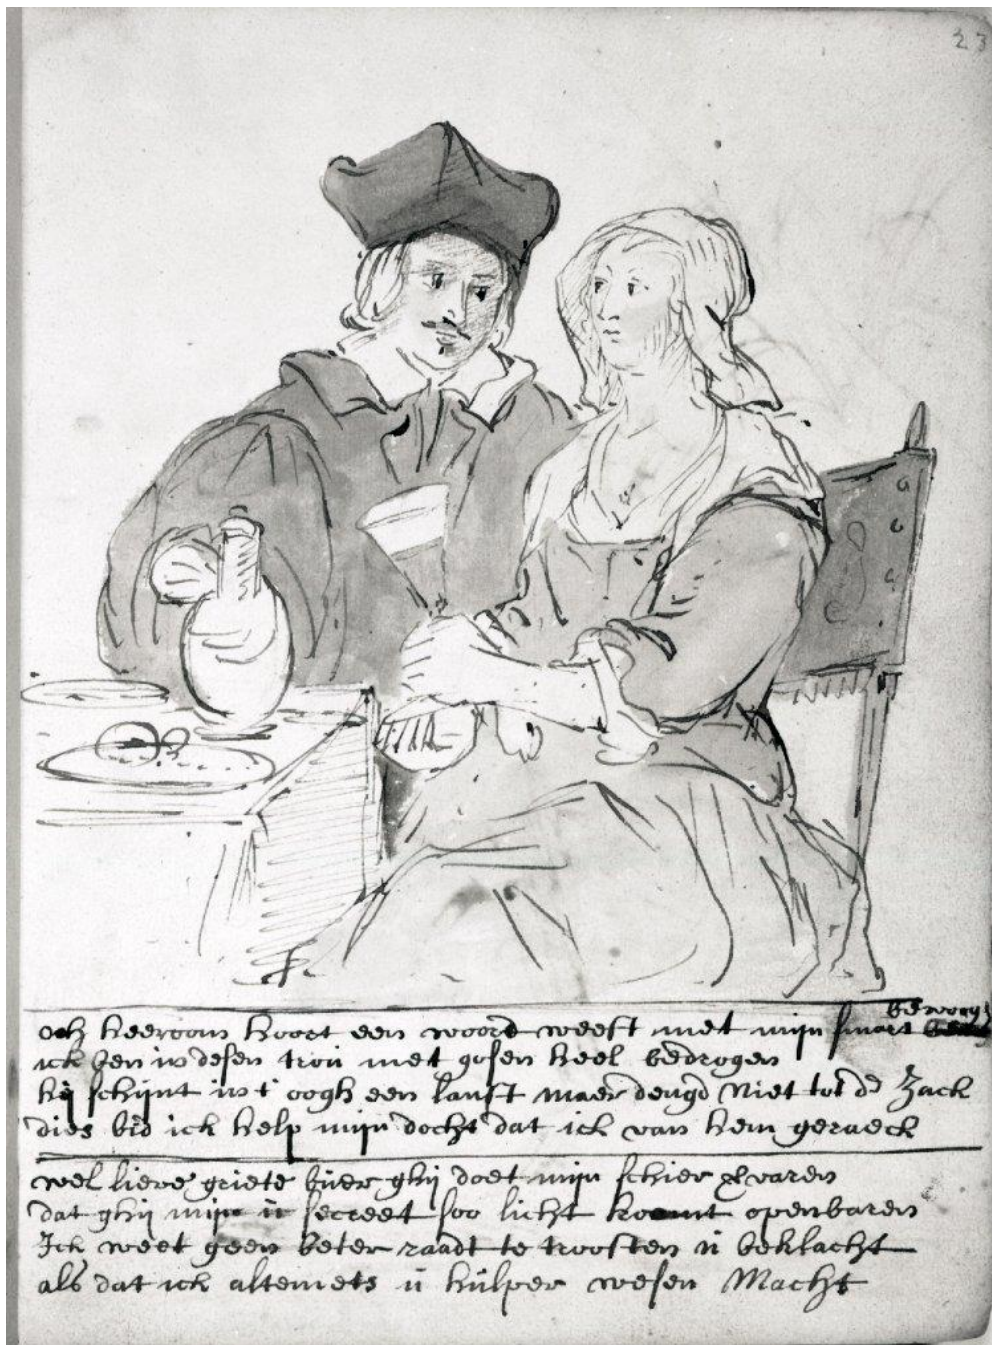 23
och heeroom hoort een woord weest met mijn smart bewoogen
ick ben in desen trou met gosen heel bedrogen
hij schijnt in t oogh een langst maer deugd Niet tot de Zack
dies bid ick help mijn docht dat ick van hem geraeck
wel lieve griete buer ghij doet mijn schier
dat ghij mijn u secreet soo licht koomt openbaren
Ick weet geen beter raadt te troosten u beklacht
als dat ick altemets u hulper wesen Macht